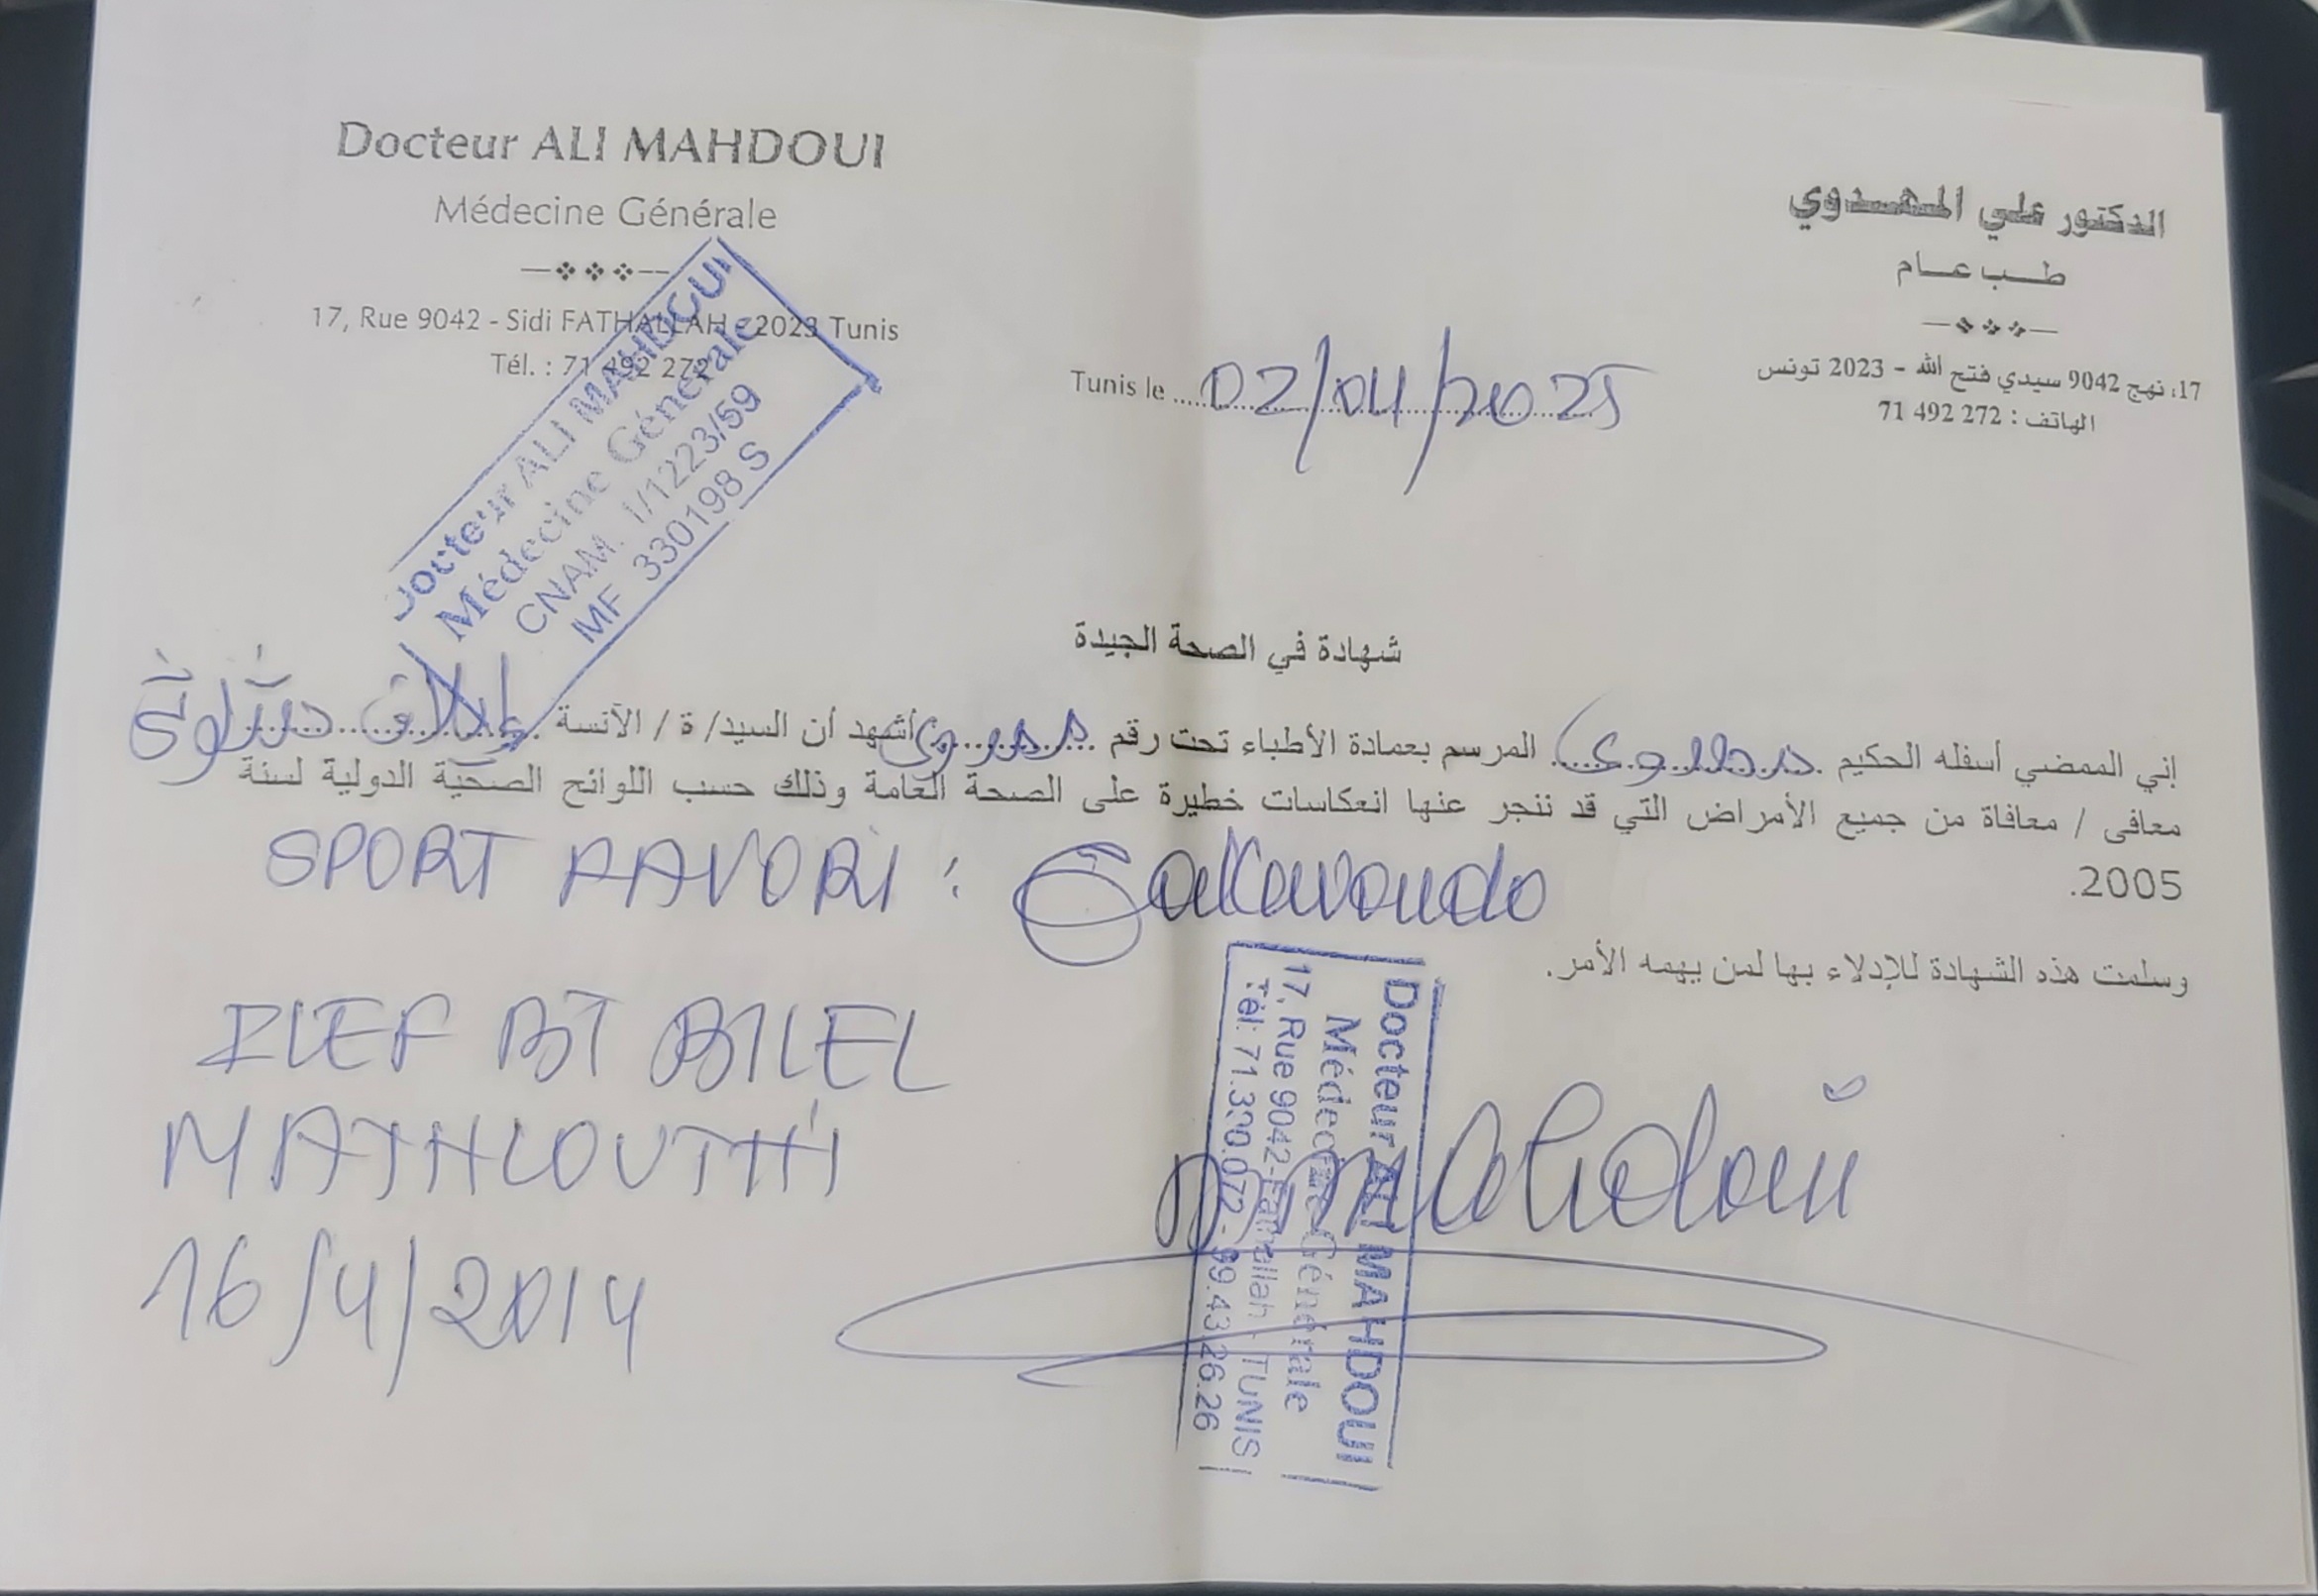 Docteur ALI MAHDOUI
Médecine Générale
17, Rue 9042 - Sidi FATHALLAH - 2023 Tunis
Tél. : 71 492 272
الدكتور علي المهدوي
طب عام
17، نهج 9042 سيدي فتح الله - 2023 تونس
الهاتف : 272 492 71
Tunis le 02/04/2025
Docteur ALI MAHDOUI
Médecine Générale
CNAM. 1/1223/59
MF 330198 S
شهادة في الصحة الجيدة
إني الممضي أسفله الحكيم مهدوي المرسم بعمادة الأطباء تحت رقم أشهد أن السيد/ ة / الآنسة
معافى / معافاة من جميع الأمراض التي قد ننجر عنها انعكاسات خطيرة على الصحة العامة وذلك حسب اللوائح الصحية الدولية لسنة
2005.
SPORT FAVORI :
وسلمت هذه الشهادة للإدلاء بها لمن يهمه الأمر.
ILEF BT BILEL
MATHLOUTHI
16/4/2014
Docteur ALI MAHDOUI
Médecine Générale
17, Rue 9042-Fathallah - TUNIS
Tél: 71.390.072 - 99.43.26.26
Dr Mahdoui